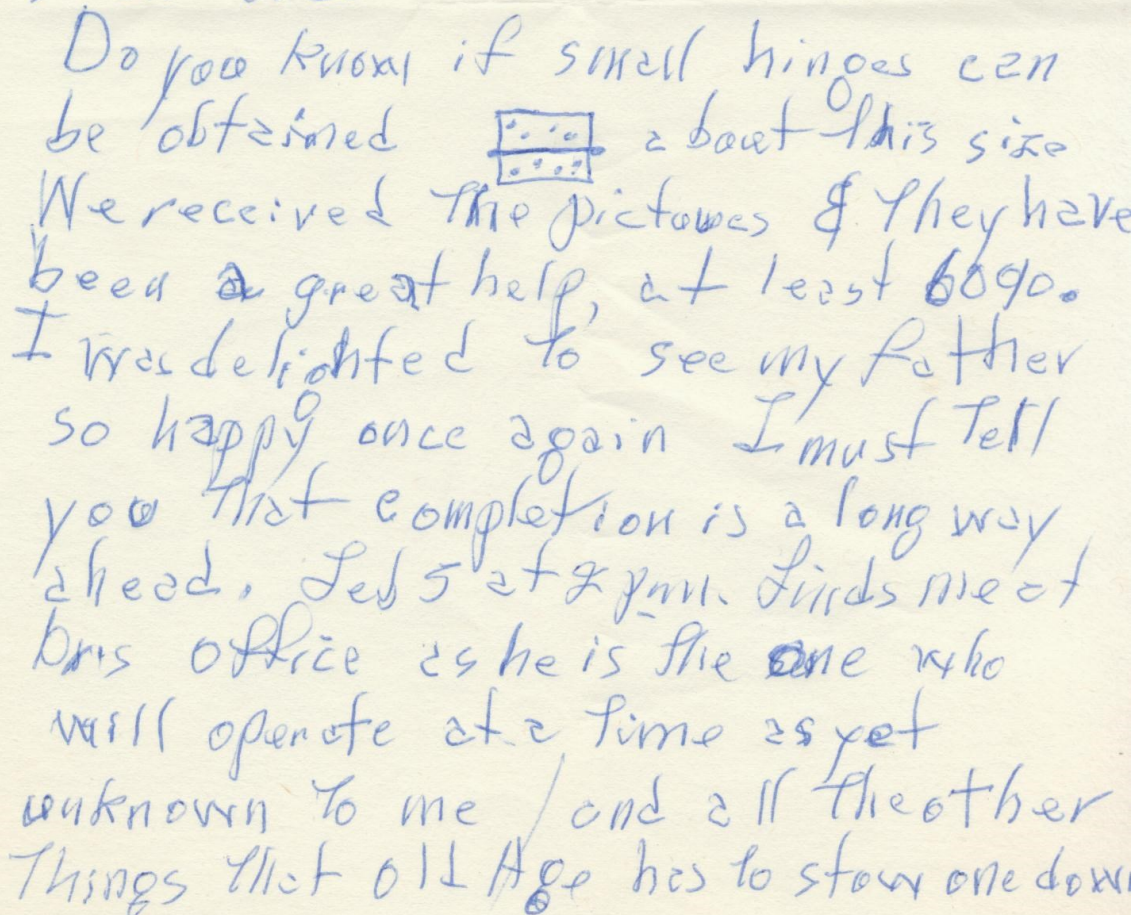 Do you know if small hinges can
be obtained about this size
We received the pictures & they have
been a great help, at least 60%.
I was delighted to see my father
so happy once again I must Tell
you that completion is a long way
ahead. Feb 5 at 2 pm. finds me at
Drs office as he is the one who
will operate at a time as yet
unknown to me / and all the other
Things that old Age has to slow one down